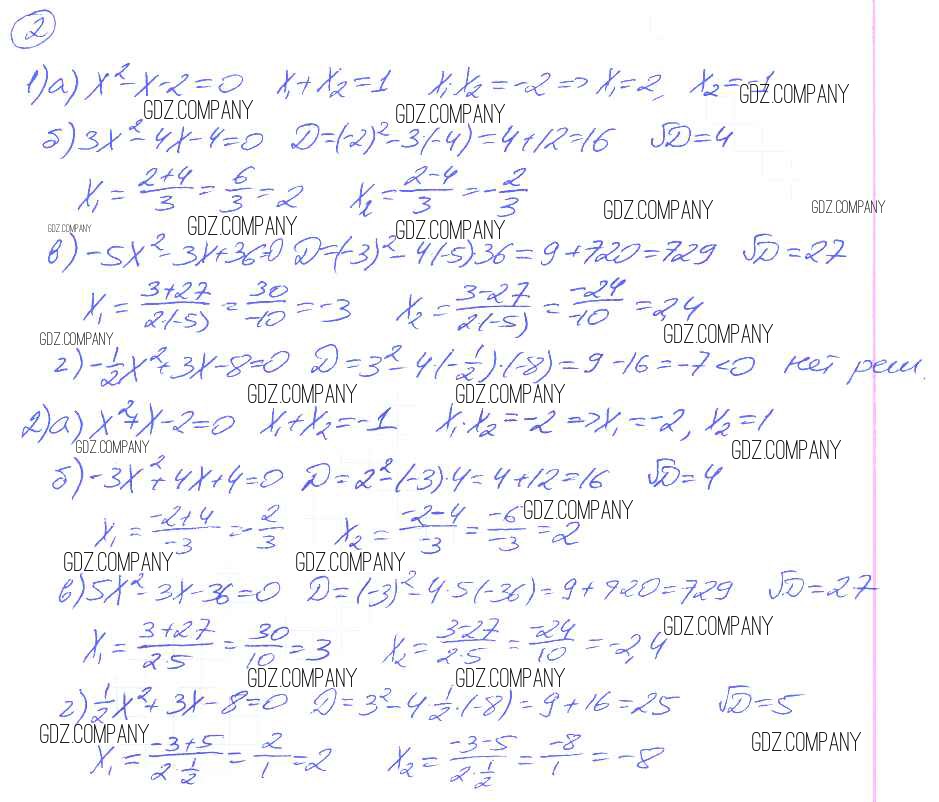 2
1) а) x² - x - 2 = 0   x₁ + x₂ = 1   x₁·x₂ = -2 => x₁ = 2,   x₂ = -1
GDZ.COMPANY GDZ.COMPANY GDZ.COMPANY
б) 3x² - 4x - 4 = 0   D = (-2)² - 3·(-4) = 4 + 12 = 16   √D = 4
x₁ = (2+4)/3 = 6/3 = 2   x₂ = (2-4)/3 = -2/3
GDZ.COMPANY GDZ.COMPANY GDZ.COMPANY GDZ.COMPANY GDZ.COMPANY
в) -5x² - 3x + 36 = 0   D = (-3)² - 4(-5)·36 = 9 + 720 = 729   √D = 27
x₁ = (3+27)/(2·(-5)) = 30/-10 = -3   x₂ = (3-27)/(2(-5)) = -24/-10 = 2,4
GDZ.COMPANY GDZ.COMPANY
г) -1/2x² + 3x - 8 = 0   D = 3² - 4(-1/2)·(-8) = 9 - 16 = -7 < 0   нет реш.
GDZ.COMPANY GDZ.COMPANY
2) а) x² + x - 2 = 0   x₁ + x₂ = -1   x₁·x₂ = -2 => x₁ = -2, x₂ = 1
GDZ.COMPANY GDZ.COMPANY
б) -3x² + 4x + 4 = 0   D = 2² - (-3)·4 = 4 + 12 = 16   √D = 4
GDZ.COMPANY
x₁ = (-2+4)/-3 = -2/3   x₂ = (-2-4)/-3 = -6/-3 = 2
GDZ.COMPANY GDZ.COMPANY
в) 5x² - 3x - 36 = 0   D = (-3)² - 4·5(-36) = 9 + 720 = 729   √D = 27
x₁ = (3+27)/(2·5) = 30/10 = 3   x₂ = (3-27)/(2·5) = -24/10 = -2,4
GDZ.COMPANY GDZ.COMPANY GDZ.COMPANY
г) 1/2x² + 3x - 8 = 0   D = 3² - 4·1/2·(-8) = 9 + 16 = 25   √D = 5
GDZ.COMPANY GDZ.COMPANY
x₁ = (-3+5)/(2·1/2) = 2/1 = 2   x₂ = (-3-5)/(2·1/2) = -8/1 = -8